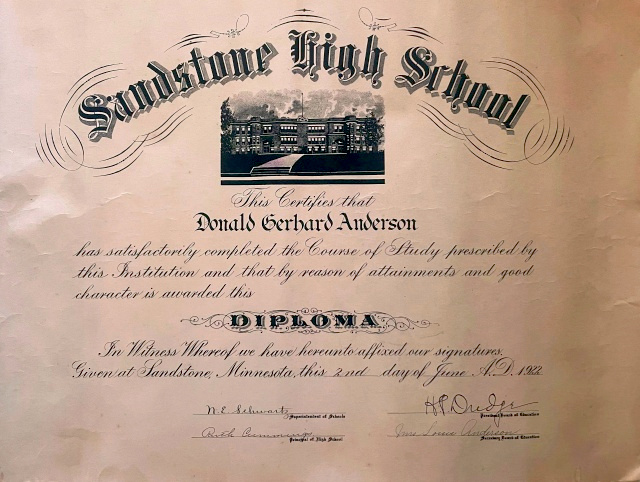 Sandstone High School
This Certifies that
Donald Gerhard Anderson
has satisfactorily completed the Course of Study prescribed by
this Institution and that by reason of attainments and good
character is awarded this
DIPLOMA
In Witness Whereof we have hereunto affixed our signatures.
Given at Sandstone, Minnesota, this 2nd day of June A.D. 1922
N.E. Schwartz
Superintendent of Schools
H.P. Dredge
President Board of Education
Ruth Cummings
Principal of High School
Mrs. Louis Anderson
Secretary Board of Education